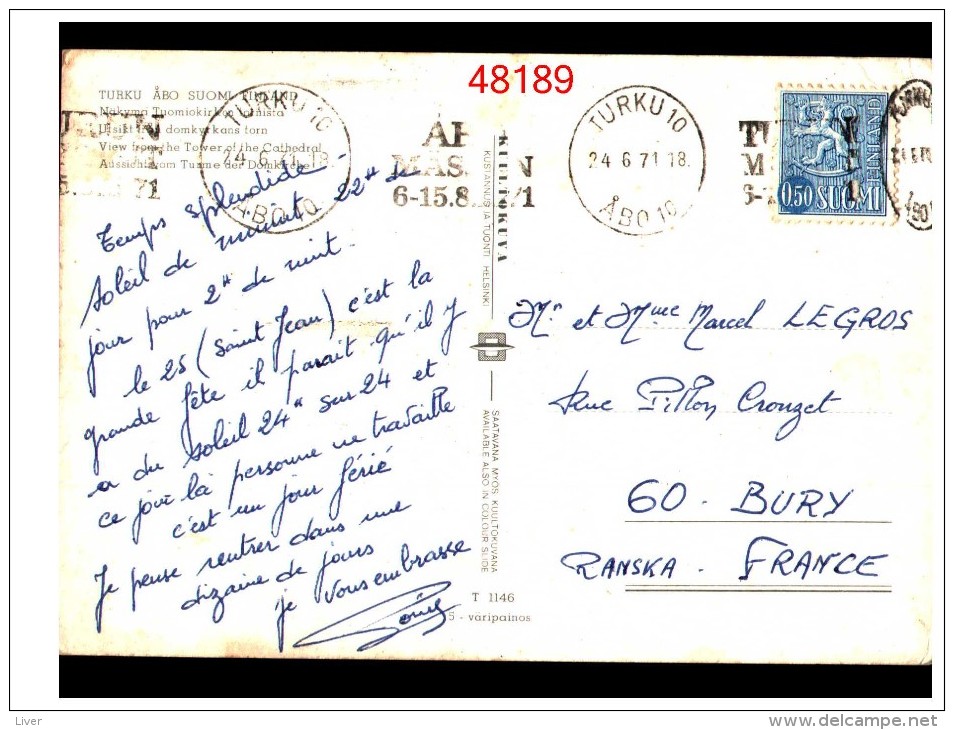 48189
TURKU ÅBO SUOMI FINLAND
Näkymä Tuomiokirkon tornista
Utsikt från domkyrkans torn
View from the Tower of the Cathedral
Aussicht vom Turme der Domkirche
TURKU 10
24.6.71.18.
ÅBO 10
MÄSSAN
6-15.8.
TURKU 10
24.6.71 18.
ÅBO 10
FINLAND
0,50 SUOMI
Temps splendide.
Soleil de minuit 22H de
jour pour 2H de nuit.
le 25 (Saint Jean) c'est la
grande fête il parait qu'il y
a du soleil 24H sur 24 et
ce jour là personne ne travaille
c'est un jour férié
Je pense rentrer dans une
dizaine de jours
je vous embrasse
KUULTOKUVA
KUSTANNUS JA TUONTI HELSINKI
SAATAVANA MYÖS KUULTOKUVANA
AVAILABLE ALSO IN COLOUR SLIDE
T 1146
5 - väripainos
Mr et Mme Marcel LEGROS
Rue Pillon Crouzet
60 - BURY
RANSKA - FRANCE
Liver
delcampe.net